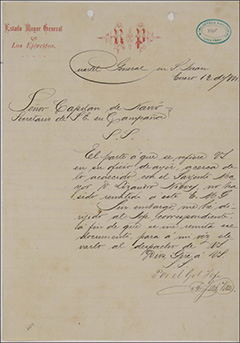 Estado Mayor General
de
Los Ejércitos.
Cuartel General en S. Juan
Enero 12 de
Señor Capitan de Navío
Secretario de S.E. en Campaña
S. S.
El parte á que se refiere VS
en su oficio de ayer, acerca de
lo acaecido con el Sargento Ma
yor D. Lizandro no ha
sido remitido a este E. M. G.
Sin embargo, me he di
rijido al Jefe correspondiente,
á fin de que se me remita ese
documento, para á mi vez ele
varlo al despacho de VS
Dios gue. á VS
S. S.
Por el Gral Jefe